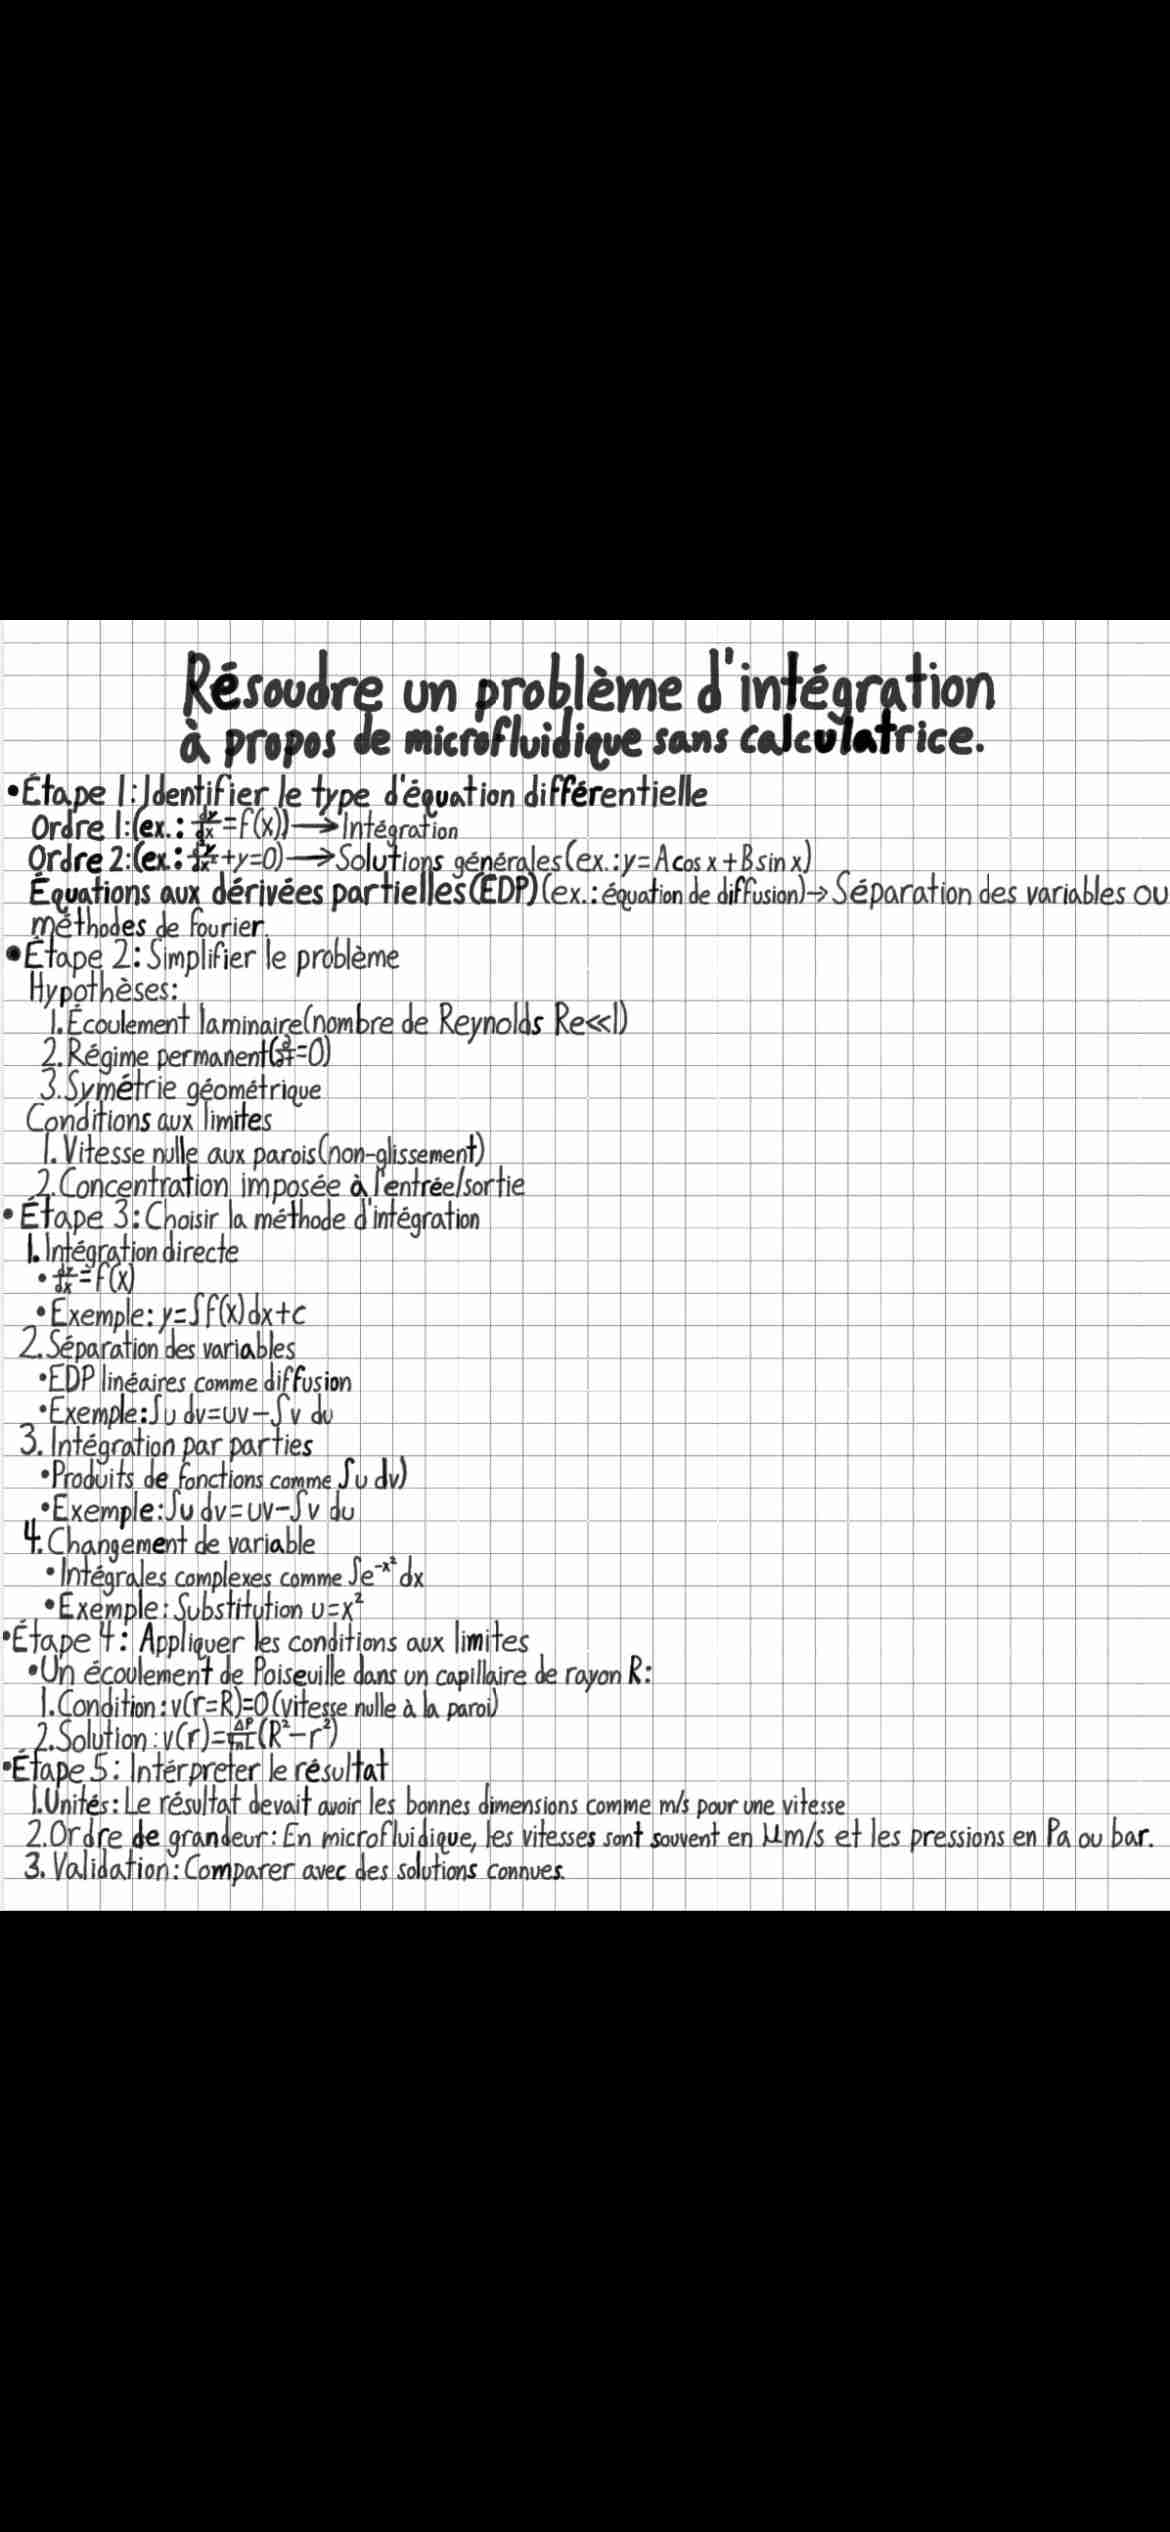 Résoudre un problème d'intégration
à propos de microfluidique sans calculatrice.
•Étape 1: Identifier le type d'équation différentielle
Ordre 1:(ex.: dy/dx=f(x))→Intégration
Ordre 2:(ex.: +y=0)→Solutions générales(ex.:y=Acosx+Bsinx)
Équations aux dérivées partielles(EDP)(ex.:équation de diffusion)→Séparation des variables ou
méthodes de fourier.
•Étape 2:Simplifier le problème
Hypothèses:
1.Écoulement laminaire(nombre de Reynolds Re≪1)
2.Régime permanent(∂/∂t=0)
3.Symétrie géométrique
Conditions aux limites
1.Vitesse nulle aux parois(non-glissement)
2.Concentration imposée à l'entrée/sortie
•Étape 3:Choisir la méthode d'intégration
1.Intégration directe
•dy/dx=f(x)
•Exemple:y=∫f(x)dx+c
2.Séparation des variables
•EDP linéaires comme diffusion
•Exemple:∫u dv=uv−∫v du
3.Intégration par parties
•Produits de fonctions comme ∫u dv)
•Exemple:∫u dv=uv−∫v du
4.Changement de variable
•Intégrales complexes comme ∫e^-x² dx
•Exemple:Substitution u=x²
•Étape 4: Appliquer les conditions aux limites
•Un écoulement de Poiseuille dans un capillaire de rayon R:
1.Condition:v(r=R)=0(vitesse nulle à la paroi)
2.Solution:v(r)= (R²−r²)
•Étape 5: Intérpreter le résultat
1.Unités: Le résultat devait avoir les bonnes dimensions comme m/s pour une vitesse
2.Ordre de grandeur: En microfluidique, les vitesses sont souvent en μm/s et les pressions en Pa ou bar.
3. Validation: Comparer avec des solutions connues.